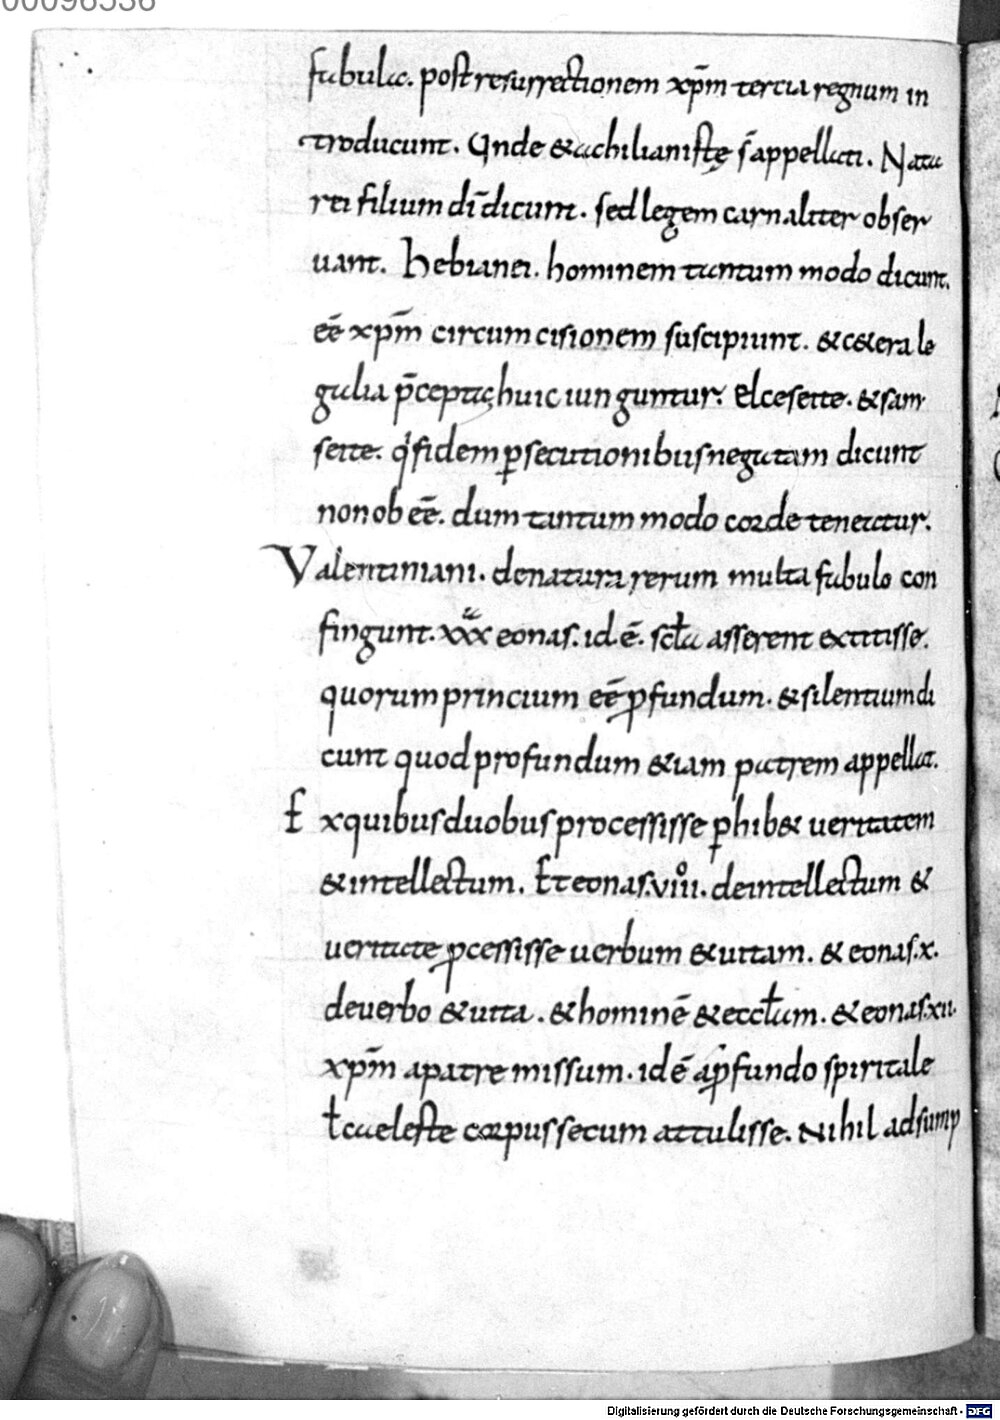 00096536
fabulae. post resurrectionem xp̄m tercia regnum in
troducunt. Unde & achilianistę s̄ appellati. Naza
rei filium dī dicunt. sed legem carnaliter obser
uant. Hebianei. hominem tantum modo dicunt.
eē xp̄m circumcisionem suscipiunt. & cetera le
galia p̄cepta huic iunguntur. Elceseite. & sam
seite. q fidem ꝑsecutionibus negatam dicunt
non ob eē. dum tantum modo corde teneatur.
Valentiniani. de natura rerum multa fabulo con
fingunt. xxx eonas. id ē. scła asserent extitisse.
quorum princium eē ꝓfundum. & silentium di
cunt quod profundum &iam patrem appellat.
Ex quibus duobus processisse ꝑhib& ueritatem
& intellectum. Et eonas. viii. de intellectum &
ueritate ꝓcessisse uerbum & uitam. & eonas. x.
de uerbo & uita. & hominē & eccłam. & eonas. xii.
xp̄m a patre missum. id ē a ꝓfundo spiritale
ł caeleste corpus secum attulisse. Nihil adsump
Digitalisierung gefördert durch die Deutsche Forschungsgemeinschaft - DFG